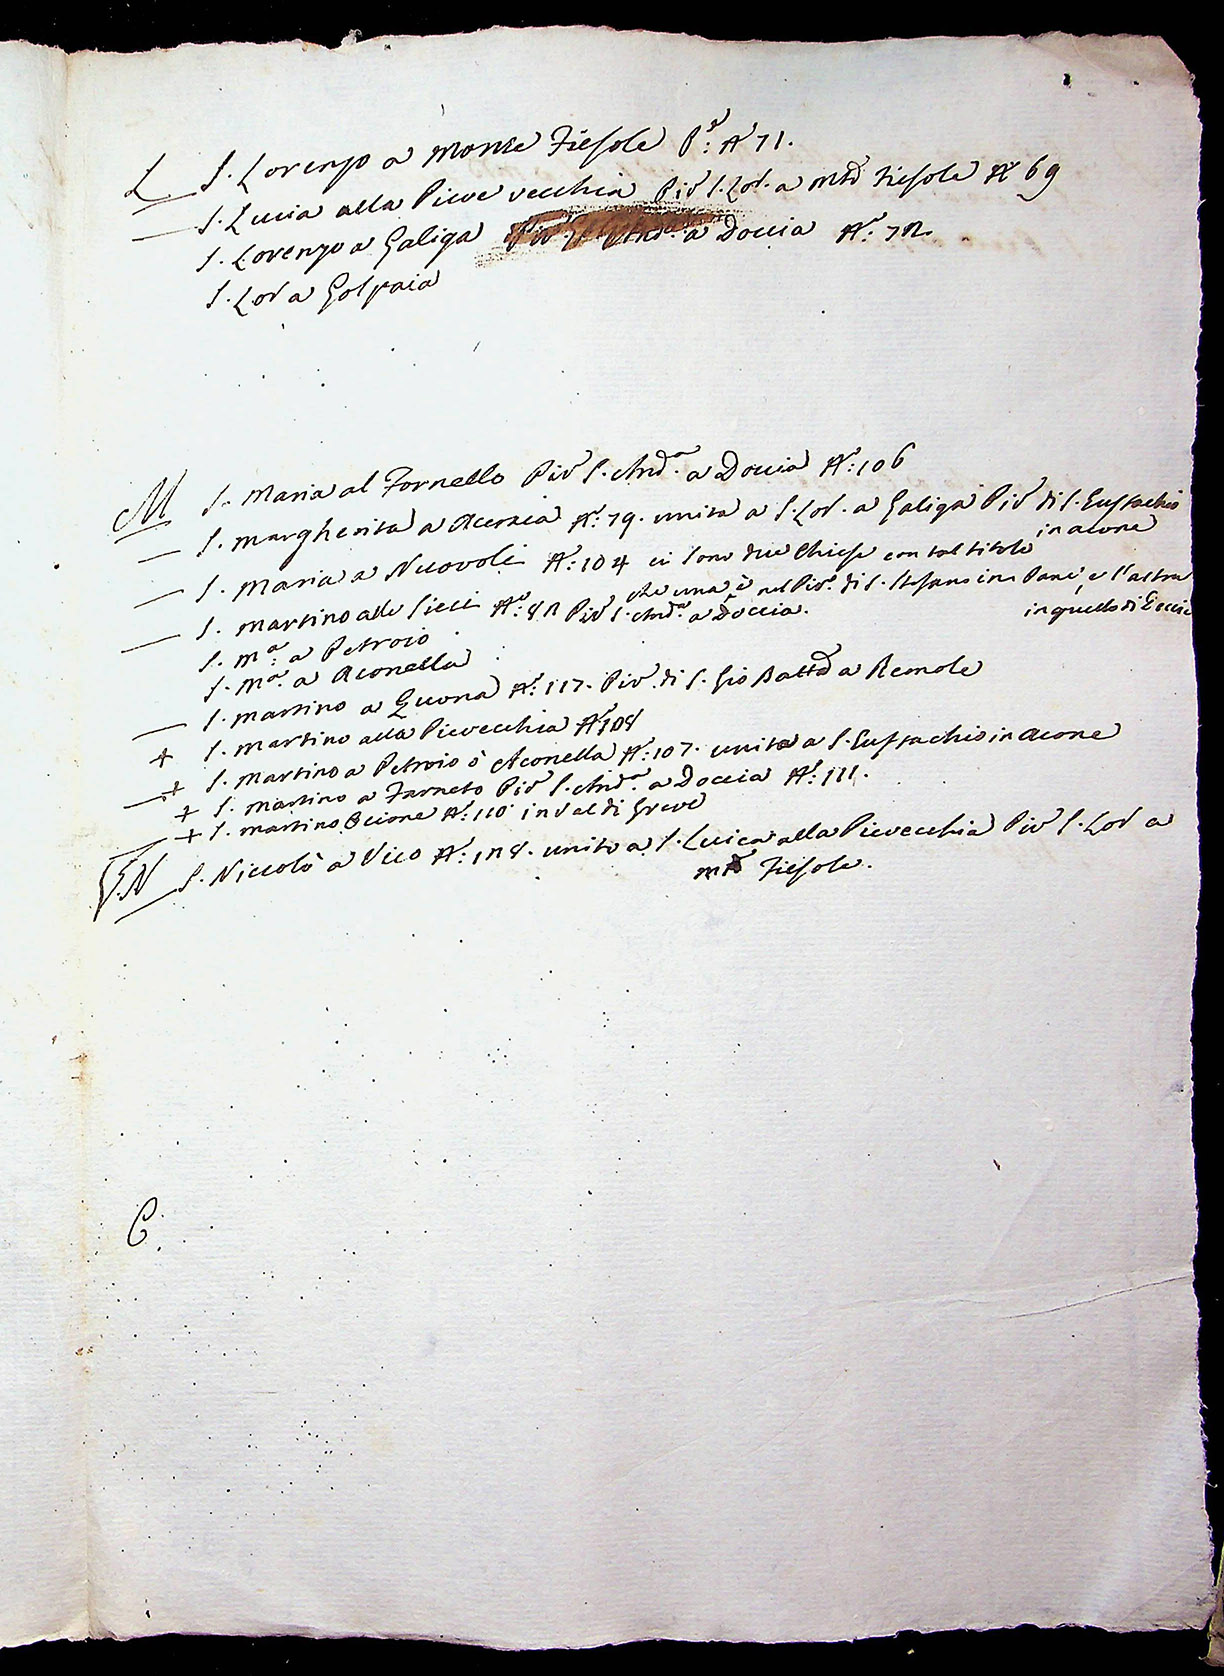 L S. Lorenzo a Monte Fiesole P.e: N.o 71.
S. Lucia alla Pieve vecchia Piv.e S. Lor.o a mte Fiesole N.o 69
S. Lorenzo a Galiga Piv.e S. And.a a Doccia N.o: 72.
S. Lor.o a Golpaia
M S. Maria al Fornello Piv.e S. And.a a Doccia N.o: 106
S. Margherita a Aceraia N.o: 79. unita a S. Lor.o a Galiga Piv.e di S. Eustachio
in acone
S. Maria a Nuovoli N.o: 104 ci sono due Chiese con tal titolo
che una è nel Piv.e di S. Stefano in Pane e l'altra
in quello di Doccia
S. Martino alle Sieci N.o: 82 Piv.e S. And.a a Doccia.
S. M.a: a Petroio
S. M.a a Aconella
S. Martino a Quona N.o: 117. Piv.e di S. Gio Batta a Remole
+ S. Martino alla Pievecchia N.o 108
+ S. Martino a Petroio ò Aconella N.o: 107. unita a S. Eustachio in acone
+ S. Martino a Farneto Piv.e S. And.a a Doccia N.o: 111.
+ S. Martino Bcione N.o: 110 in Val di Greve
N S. Niccolò a Vico N.o: 128. unito a S. Lucia alla Pievecchia Piv.e S. Lor.o a
mte Fiesole.
C.